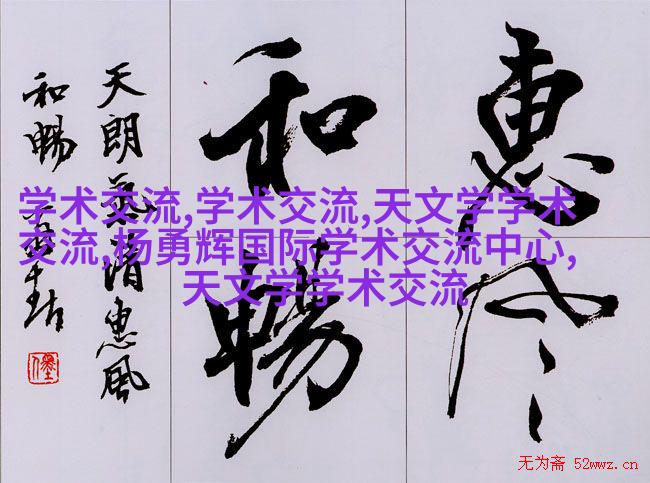 惠风
和暢
天朗氣清惠風
和暢
学术交流,学术交流,天文学学术
交流,杨勇辉国际学术交流中心,
天文学学术交流
无为斋 52wwz.cn